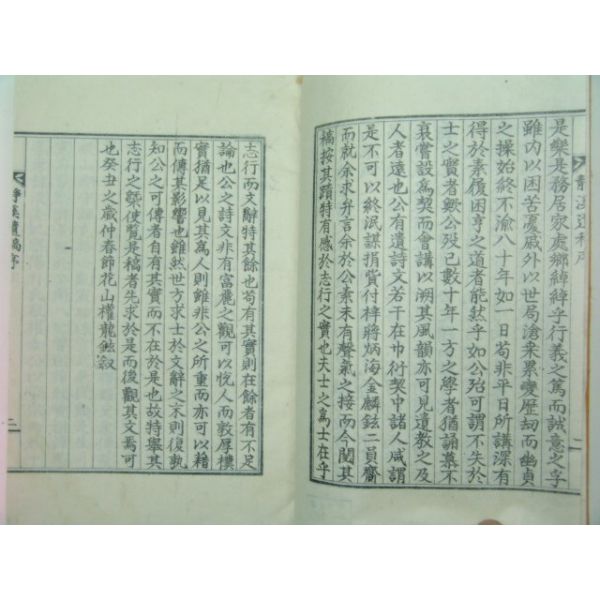 是樂是務居家處鄉綽綽乎行義之篤而誠意之孚
雖内以困苦憂戚外以世局滄桑累變歷劫而幽貞
之操始終不渝八十年如一日苟非平日所講深有
得於素履困亨之道者能然乎如公殆可謂不失於
士之實者歟公歿已數十年一方之學者猶誦慕不
衰嘗設爲契而會講以溯其風韻亦可見遺敎之及
人者遠也公有遺詩文若干在巾衍契中諸人咸謂
是不可以終泯謀捐貲付梓將炳海金麟鉉二員齎
而就余求弁言余於公素未有聲氣之接而今閱其
稿按其蹟特有感於志行之實也夫士之爲士在乎
志行而文辭特其餘也苟有其實則在餘者有不足
論也公之詩文非有富麗之觀可以悅人而敦厚樸
實猶足以見其爲人則雖非公之所重而亦可以藉
而傳其影響也雖然世方求士於文辭之末則復孰
知公之可傳者自有其實而不在於是也故特擧其
志行之槩使覽是稿者先求於是而後觀其文焉可
也癸丑之歲仲春節花山權龍鉉叙
靜溪遺稿序
二